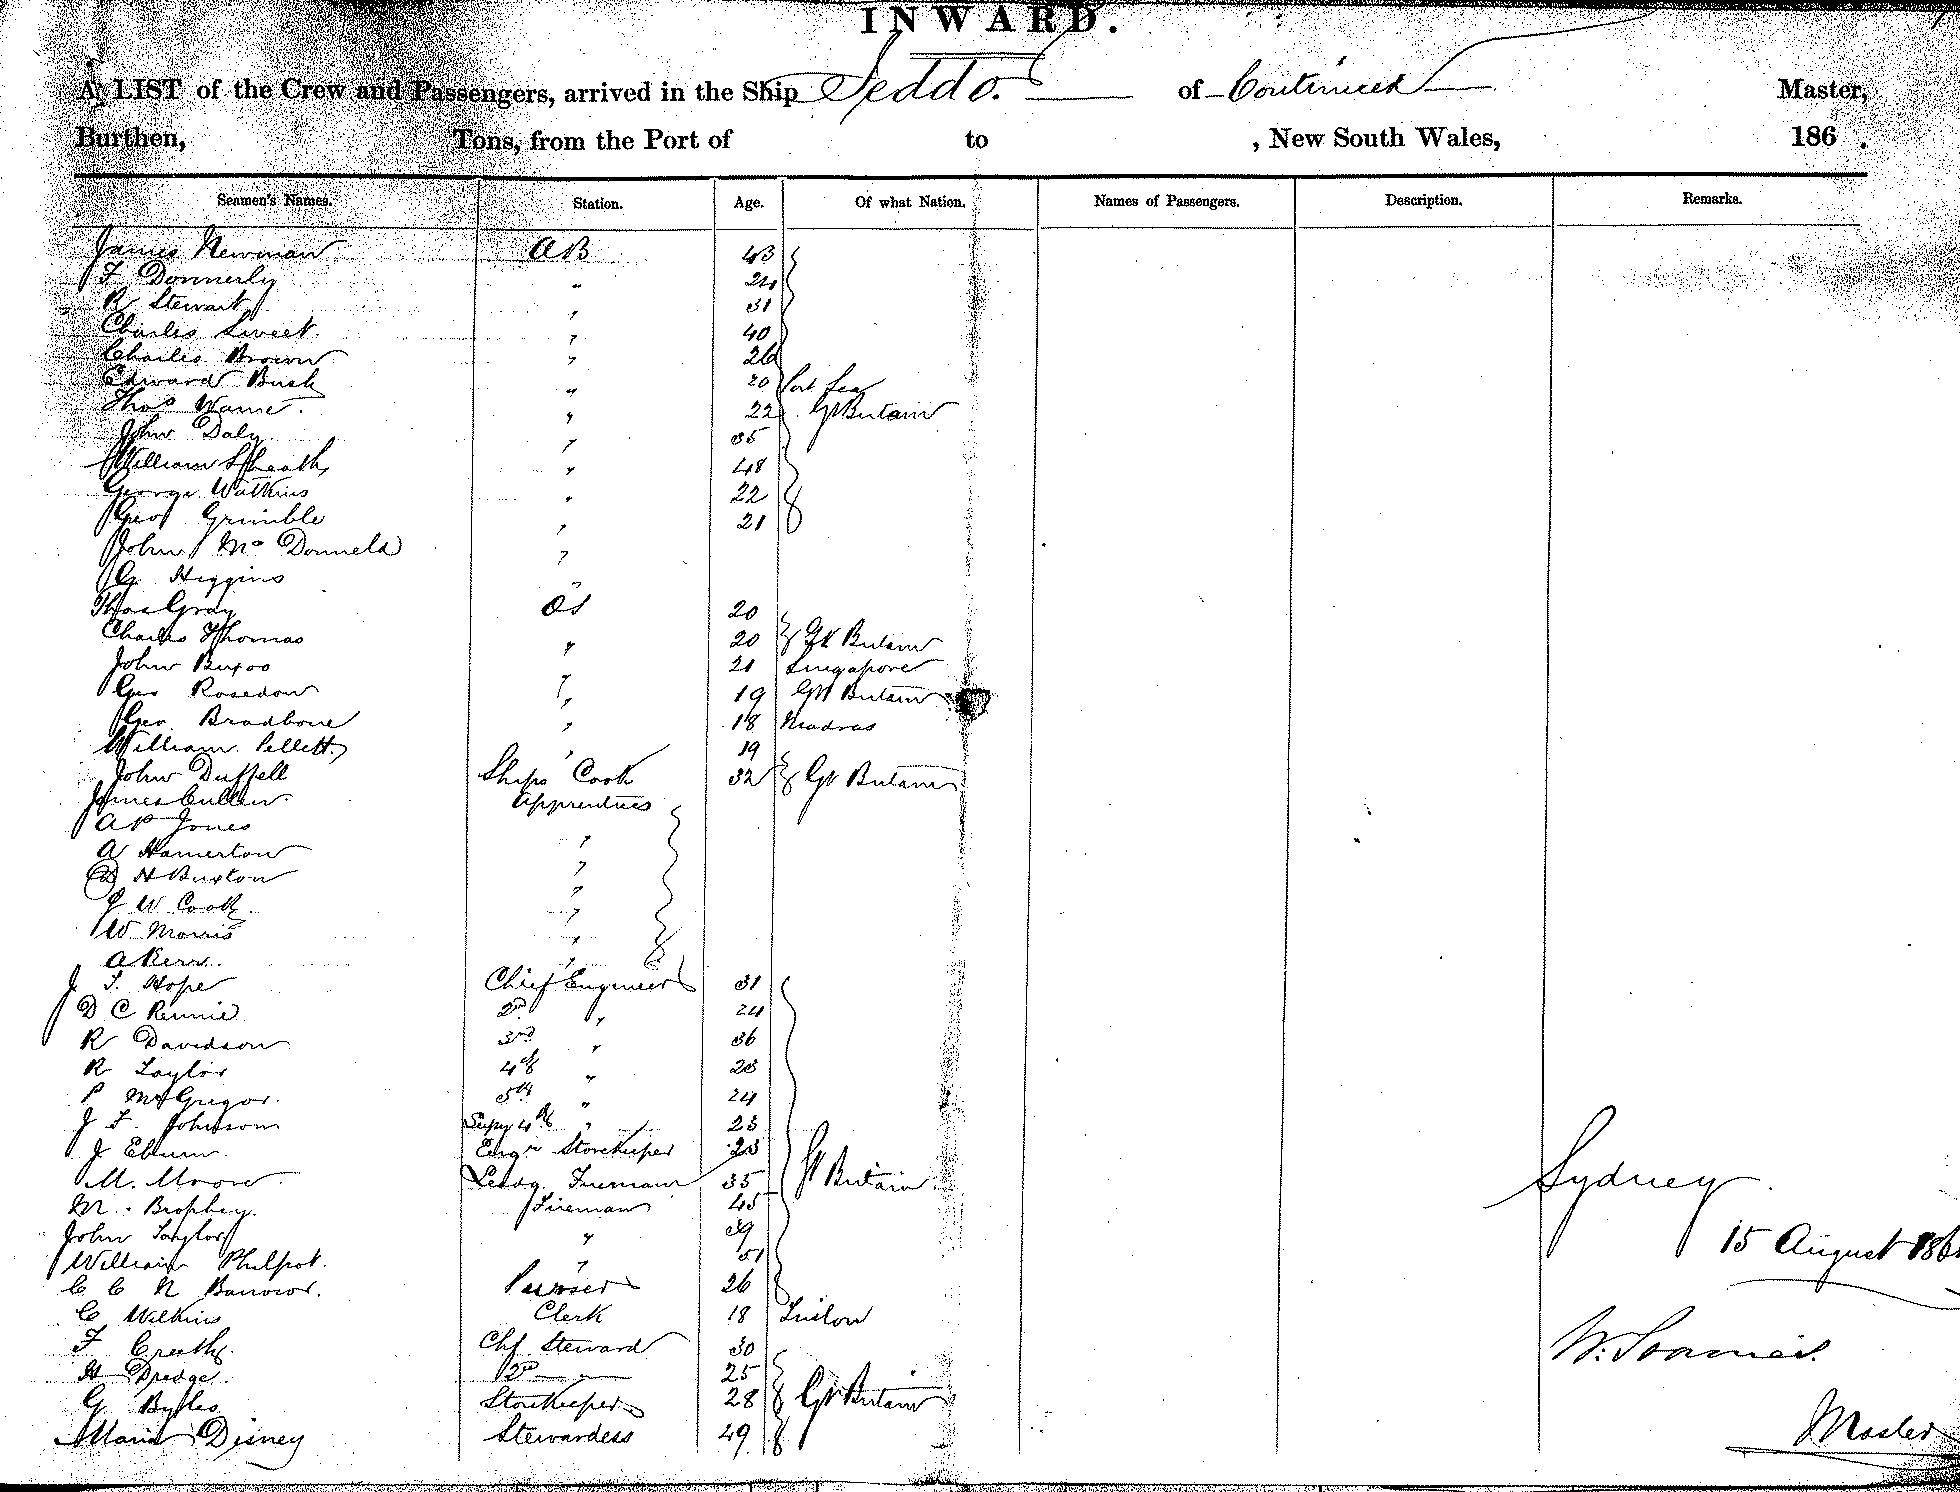 INWARD.
A LIST of the Crew and Passengers, arrived in the Ship Jeddo. of Continued Master,
Burthen, Tons, from the Port of to , New South Wales, 186 .
Seamen's Names. Station. Age. Of what Nation. Names of Passengers. Description. Remarks.
James Newman AB 43
F Donnerly " 24
R Stewart " 31
Charles Sweet " 40
Charles Brown " 26
Edward Bush " 20
Thos Warne. " 22 Gt Britain
John Daly. " 35
William " 48
George Watkins " 22
Geo Grimble " 21
John Mc Donneld "
G Higgins "
Thos Gray OS 20
Charles Thomas " 20 Gt Britain
John Buxoo 21 Singapore
Geo Rosedon " 19 Gt Britain
Geo Bradbone " 18 Madras
William Pellett " 19
John Duffell Ships Cook 32 Gt Britain
James Cullen. Apprentices
A P Jones "
A Hamerton "
H Buxton "
G W Cook "
W Morris "
A Kerr. "
J. T. Hope Chief Engineer 31
D C Rennie 2d " 24
R Davidson 3rd " 36
R Taylor 4th " 23
P McGregor. 5th " 24
J F. Johnson Supy 4th " 23
J Eburn Engr Storekeeper 23
M. Moore Leadg. Fireman 35 Gt Britain
M. Brophey. Fireman 45
John Taylor " 39
William Philpot. " 51
C C N Barrow. Purser 26
C Wilkins Clerk 18
F Creath Chf Steward 30
H Dredge. 2d " 25
G Byfles Storekeeper 28 Gt Britain
Maria Disney Stewardess 49
Sydney.
15 August 186
W. Soames.
Master